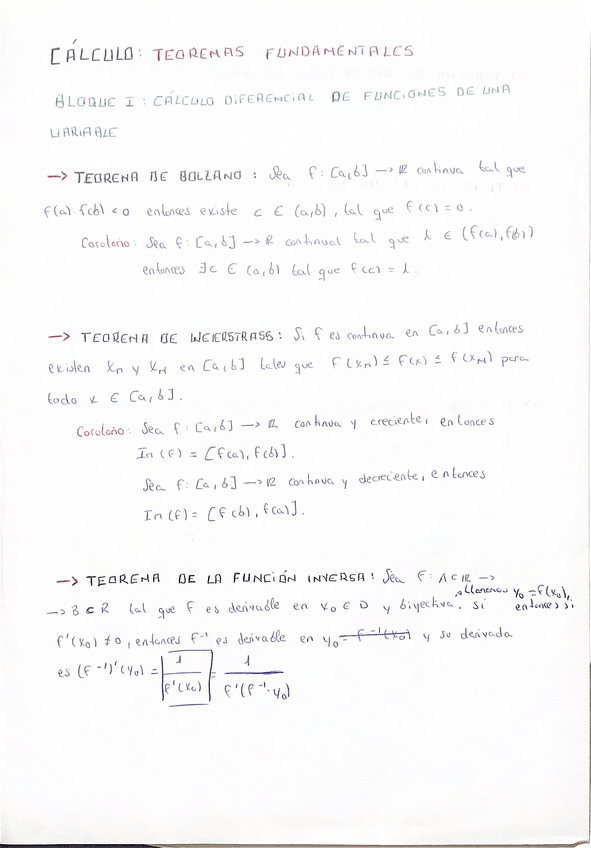 CÁLCULO: TEOREMAS FUNDAMENTALES
BLOQUE I: CÁLCULO DIFERENCIAL DE FUNCIONES DE UNA
VARIABLE
→ TEOREMA DE BOLZANO: Sea f: [a,b] → ℝ continua tal que
f(a)·f(b) < 0 entonces existe c ∈ (a,b), tal que f(c) = 0.
Corolario: Sea f: [a,b] → ℝ continua tal que λ ∈ (f(a), f(b))
entonces ∃c ∈ (a,b) tal que f(c) = λ.
→ TEOREMA DE WEIERSTRASS: Si f es continua en [a,b] entonces
existen x_m y x_M en [a,b] tales que f(x_m) ≤ f(x) ≤ f(x_M) para
todo x ∈ [a,b].
Corolario: Sea f: [a,b] → ℝ continua y creciente, entonces
Im(f) = [f(a), f(b)].
Sea f: [a,b] → ℝ continua y decreciente, entonces
Im(f) = [f(b), f(a)].
→ TEOREMA DE LA FUNCIÓN INVERSA: Sea f: A ⊂ ℝ →
→ B ⊂ ℝ tal que f es derivable en x₀ ∈ D y biyectiva. Si llamamos y₀ = f(x₀), entonces si
f'(x₀) ≠ 0, entonces f⁻¹ es derivable en y₀ = f⁻¹(x₀) y su derivada
es (f⁻¹)'(y₀) = 1/f'(x₀) = 1/f'(f⁻¹·y₀)